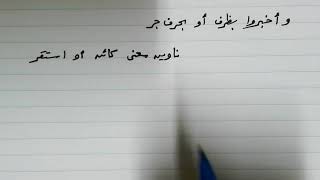 وأخبروا بظرف أو بحرف جر
ناوين معنى كائن أو استقر